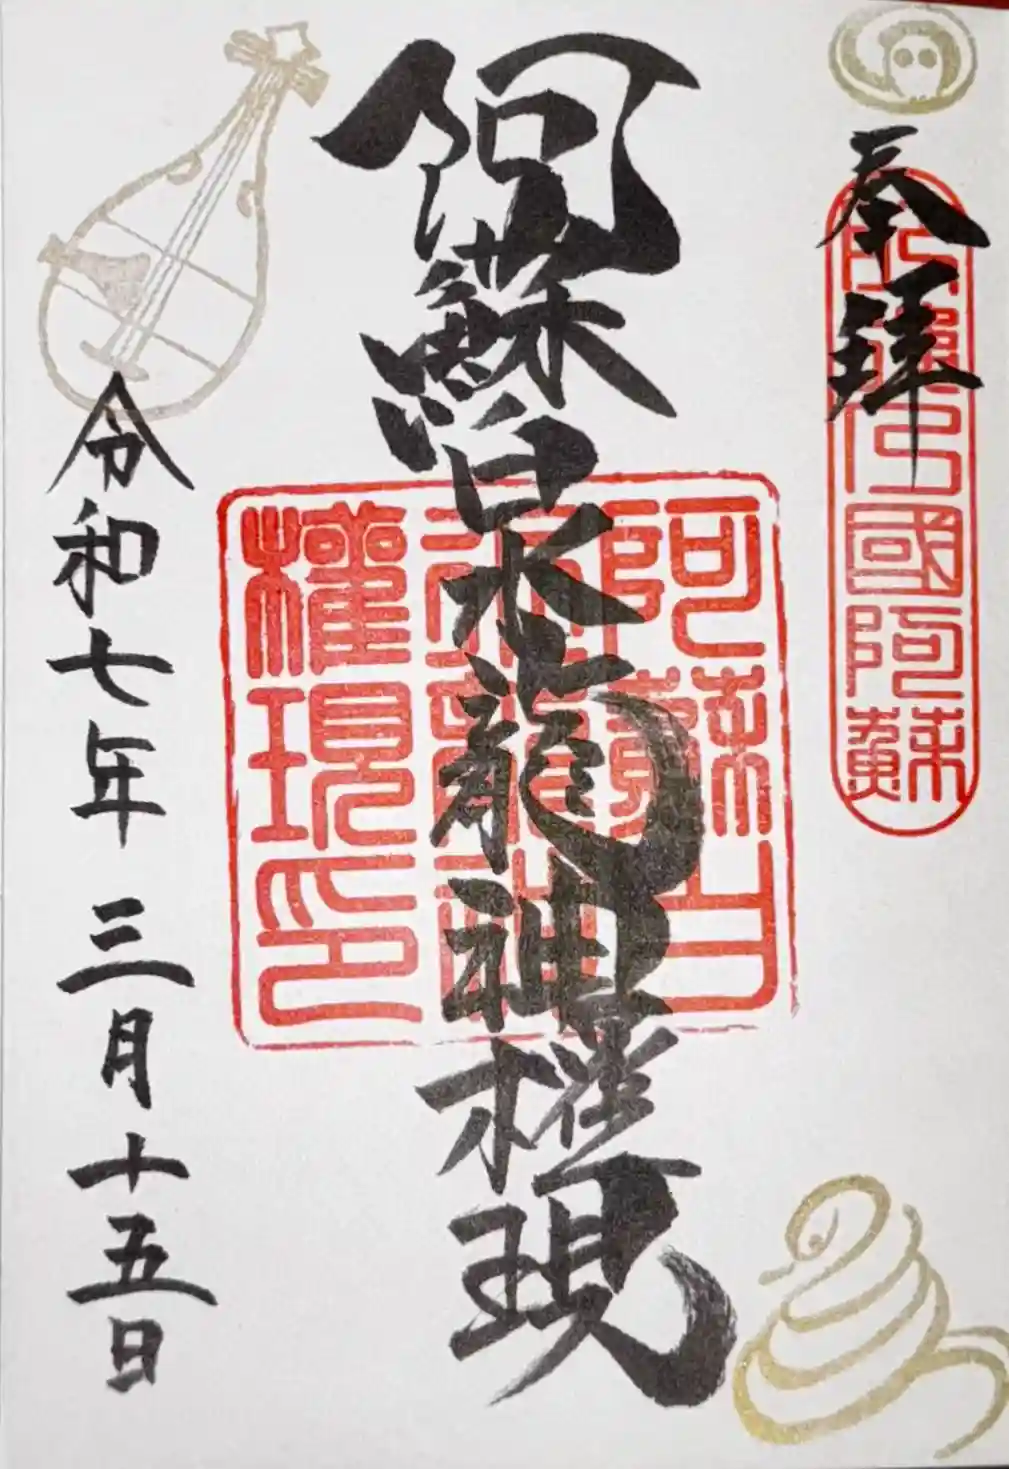 奉拝
國阿蘇
阿蘇白水龍神権現
阿蘇白
水龍神
權現印
令和七年三月十五日